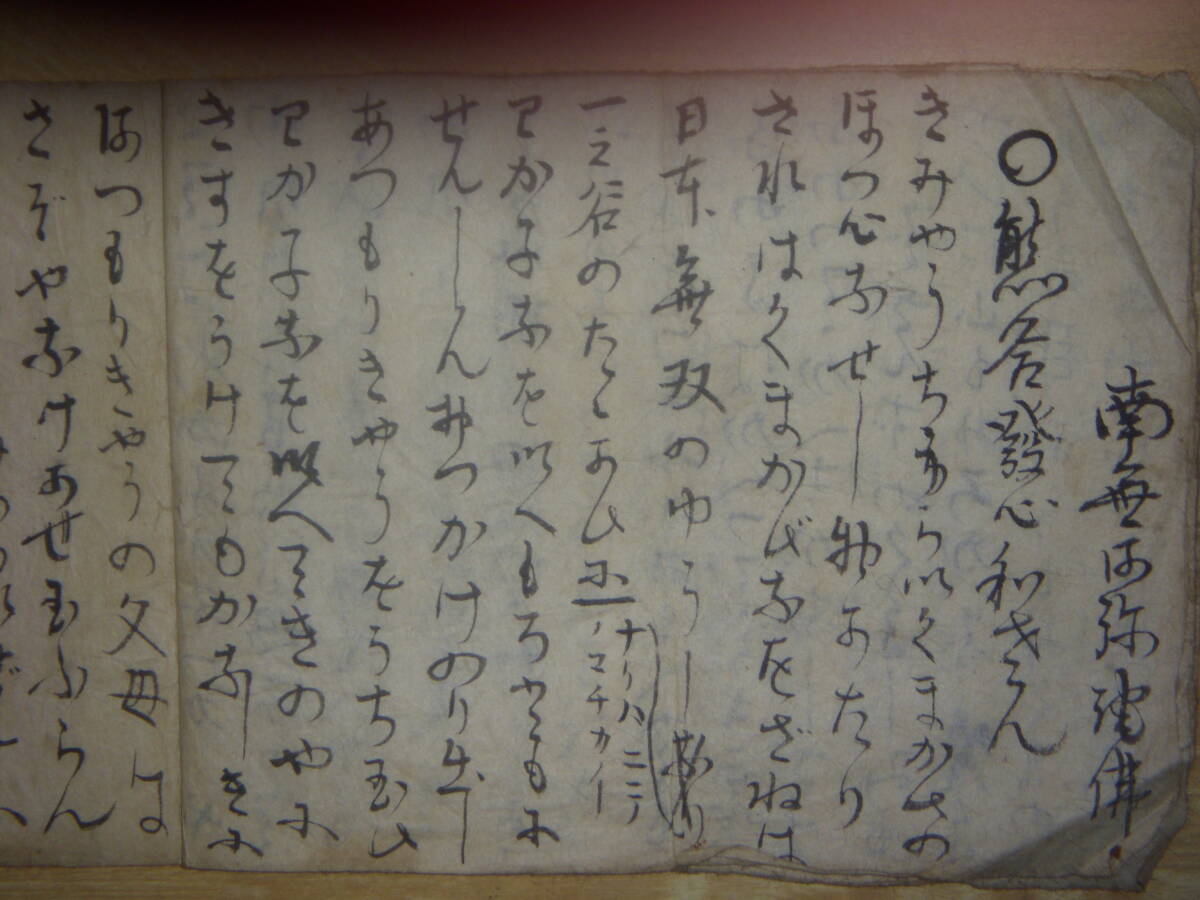 南無阿弥陀佛
〇熊谷發心和さん
きみやうちやうらいくまかゑの
ほつ心なせし物かたり
されはくまがゑなをざねは
日本無双のゆうしなり
一之谷のたゝかひに
ナリハニテ
ノマチカイ
わか子なを以へもろともに
せんしん
かけのり出し
あつもりきやうをうち玉ひ
わか子なを以へてきのやに
きずをうけてもかなしきに
あつもりきやうの父母は
さぞやなけかせ玉ふらん